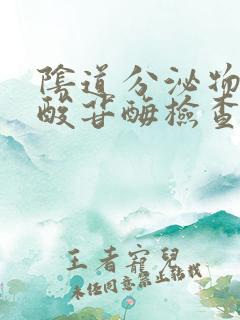 陰道分泌物
酸苷酶檢查
王者寵兒
未任同意禁止轉載